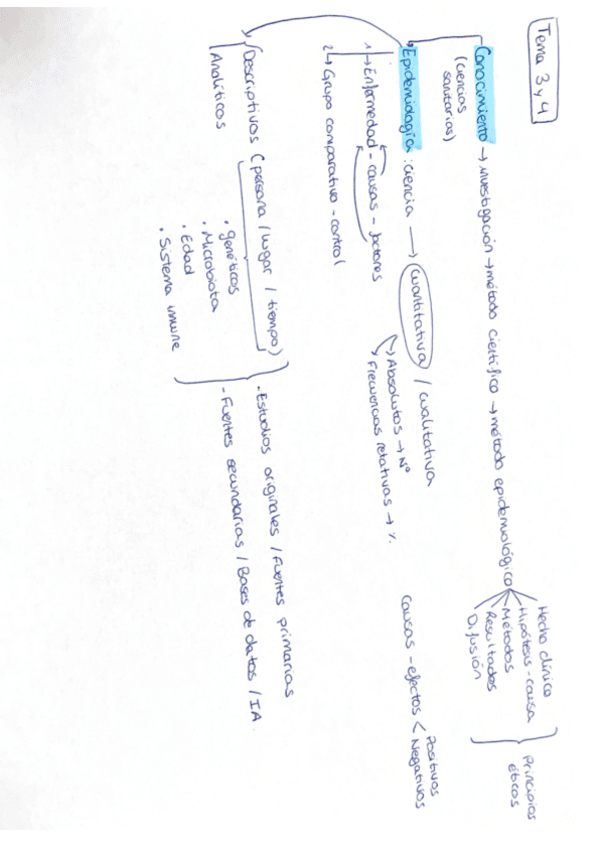 Tema 3 y 4
Conocimiento → investigación → método científico → método epidemiológico
(ciencias sanitarias)
Hecho clínico
Hipótesis - causa
Métodos
Resultados
Difusión
Principios éticos
Epidemiología: ciencia → cuantitativa / cualitativa
Absolutos → Nº
Frecuencias relativas → %
causas - efectos < Positivos
Negativos
1 → Enfermedad - causas - factores
2 → Grupo comparativo - control
Descriptivos (persona / lugar / tiempo)
Analíticos
· genéticos
· Microbiota
· Edad
· Sistema inmune
- Estudios originales / Fuentes primarias
- Fuentes secundarias / Bases de datos / IA